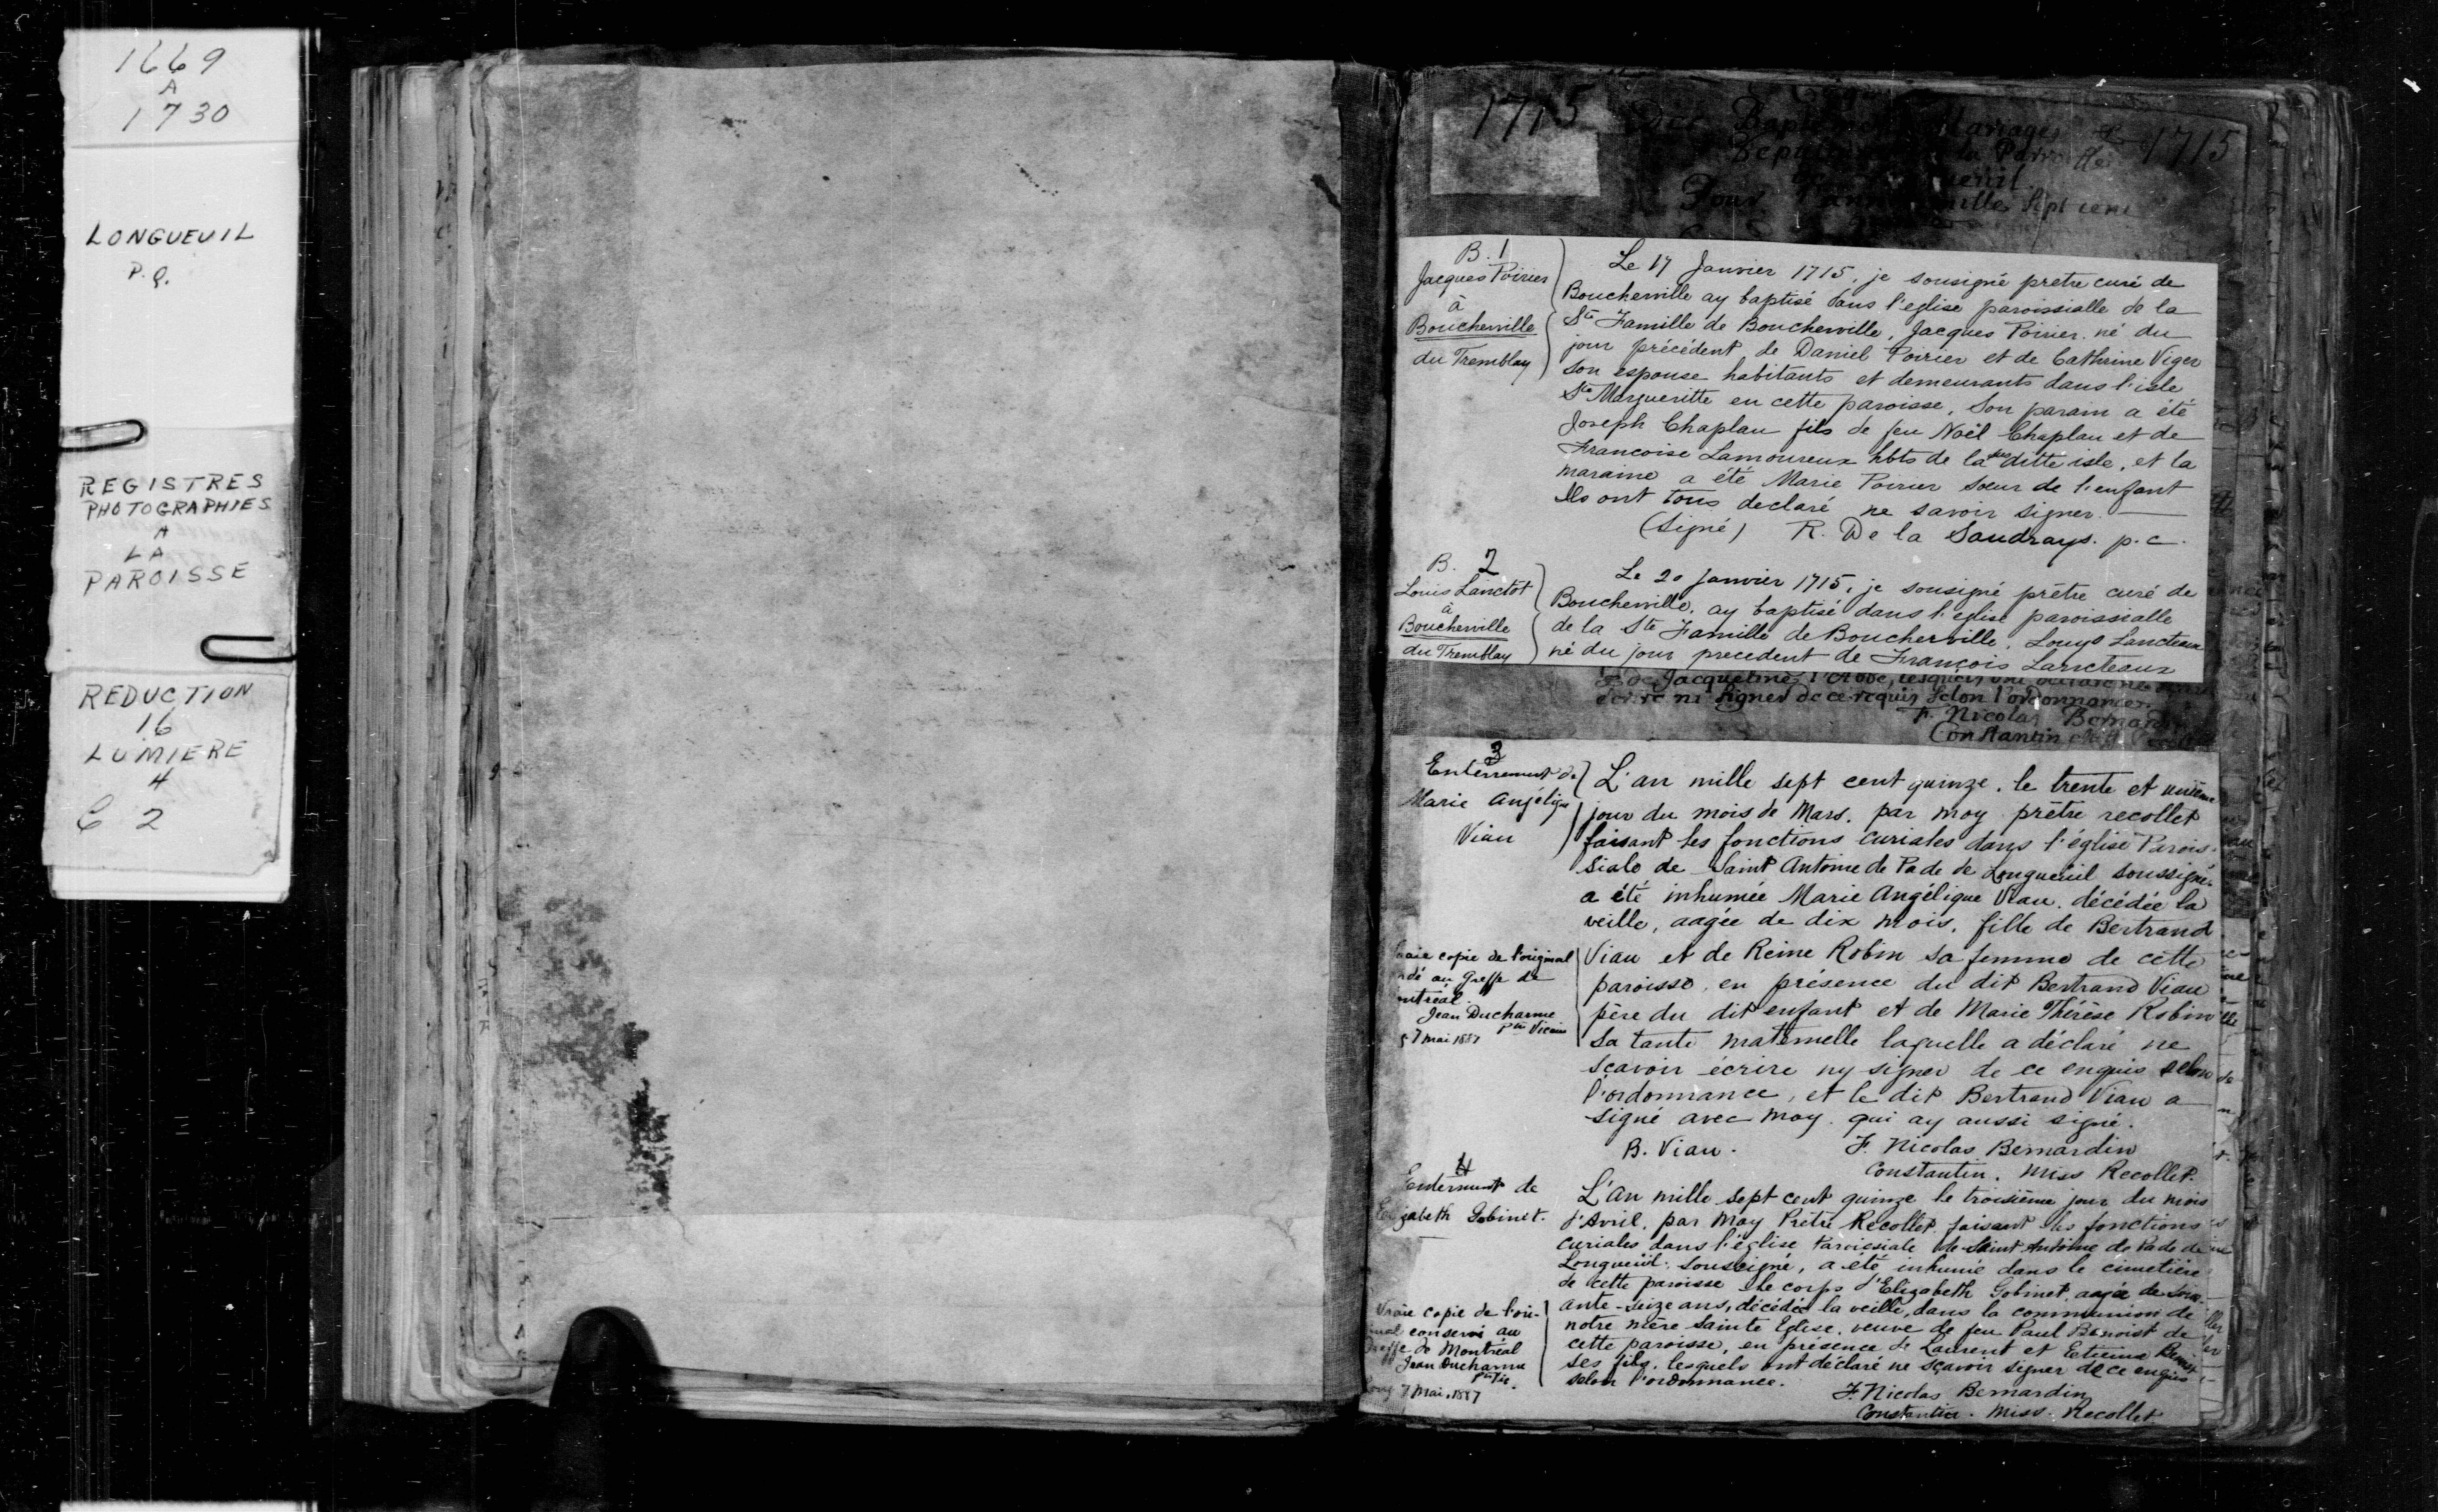 1669
A
1730
LONGUEUIL
P.Q.
REGISTRES
PHOTOGRAPHIES
A
LA
PAROISSE
REDUCTION
16
LUMIERE
4
C 2
1715
Des Baptemes Mariages &
la Parroisse
1715
Pour mille sept cent
B. 1
Jacques Poirier
à
Boucherville
du Tremblay
Le 17 Janvier 1715, je sousigné prêtre curé de
Boucherville ay baptisé dans l'eglise paroissialle de la
Ste Famille de Boucherville, Jacques Poirier né du
jour précédent de Daniel Poirier et de Cathrine Viger
Son espouse habitants et demeurants dans l'isle
Ste Margueritte en cette paroisse, Son parain a été
Joseph Chaplau fils de feu Noël Chaplau et de
Francoise Lamoureux hbts de la sus ditte isle, et la
maraine a été Marie Poirier soeur de l'enfant
Ils ont tous declaré ne savoir signer.
(Signé) R. De la Saudrays. p.c.
B. 2
Louis Lanctot
à
Boucherville
du Tremblay
Le 20 Janvier 1715, je sousigné prêtre curé de
Boucherville, ay baptisé dans l'eglise paroissialle
de la Ste Famille de Boucherville, Louys Lancteaux
né du jour precedent de François Lancteaux
& de Jacqueline l'Abbé, lesquels ont declaré ne
ecrire ni signer de ce requis selon l'ordonnance.
F. Nicolas Bernardin
Constantin
3
Enterrement de
Marie Angélique
Viau
L'an mille sept cent quinze, le trente et unième
jour du mois de Mars, par moy prêtre recollet
faisant les fonctions curiales dans l'église Parois-
siale de Saint Antoine de Pade de Longueuil soussigné,
a été inhumée Marie Angélique Viau, décédée la
veille, aagée de dix mois, fille de Bertrand
Viau et de Reine Robin sa femme de cette
paroisse, en présence du dit Bertrand Viau
père du dit enfant et de Marie Thérèse Robin
sa tante maternelle laquelle a déclaré ne
sçavoir écrire ny signer de ce enquis selon
l'ordonnance, et le dit Bertrand Viau a
signé avec moy qui ay aussi signé.
B. Viau. F. Nicolas Bernardin
Constantin. Miss Recollet.
copie de l'original
au Greffe de
Jean Ducharme
Ptre Vicaire
7 mai 1887
4
Enterrement de
Elizabeth Gobinet.
L'an mille sept cent quinze le troisième jour du mois
d'Avril, par moy Prêtre Recollet faisant les fonctions
curiales dans l'église Paroissiale de Saint Antoine de Pade de
Longueuil. Soussigné, a été inhumé dans le cimetière
de cette paroisse le corps d'Elizabeth Gobinet, aagée de soix-
ante-seize ans, décédée la veille, dans la communion de
notre mère Sainte Eglise, veuve de feu Paul Benoist de
cette paroisse, en présence de Laurent et Etienne Benoit
ses fils, lesquels ont déclaré ne sçavoir signer de ce enquis
selon l'ordonnance.
F. Nicolas Bernardin
Constantin. Miss. Recollet
Vraie copie de l'ori-
conservé au
de Montréal
Jean Ducharme
Ptre Vic.
7 Mai. 1887